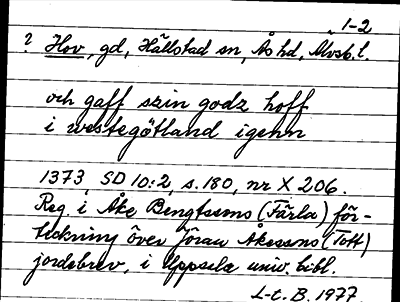 1-2
? Hov, gd, Hällstad sn, Ås hd, Älvsb. l.
och gaff szin godz hoff
i westegötland igenn
1373 SD 10:2, s. 180, nr X 206.
Reg i Åke Bengtssons (Färla) för-
teckning över Jöran Åkessons (Tott)
jordebrev, i Uppsala univ. bibl.
L-t. B. 1977.